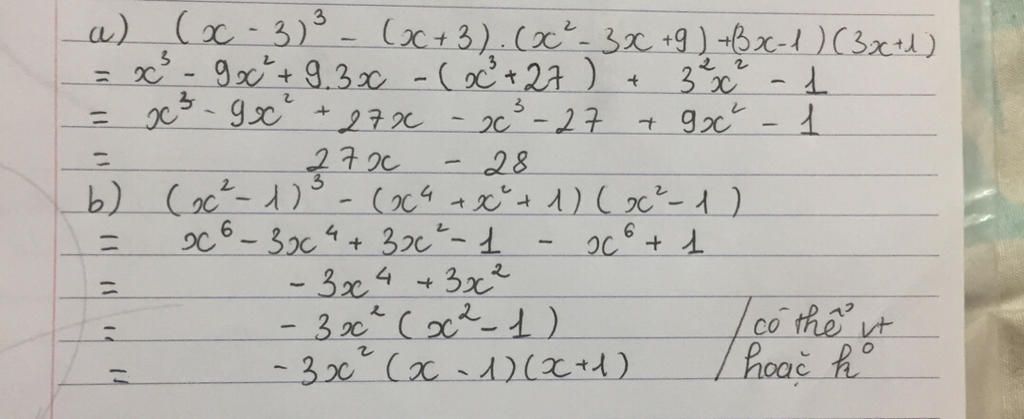 a) (x - 3)³ - (x + 3).(x² - 3x + 9) + (3x - 1)(3x + 1)
= x³ - 9x² + 9.3x - (x³ + 27) + 3²x² - 1
= x³ - 9x² + 27x - x³ - 27 + 9x² - 1
= 27x - 28
b) (x² - 1)³ - (x⁴ + x² + 1)(x² - 1)
= x⁶ - 3x⁴ + 3x² - 1 - x⁶ + 1
= - 3x⁴ + 3x²
= - 3x² (x² - 1) / có thể vt
= - 3x² (x - 1)(x + 1) / hoặc k⁰